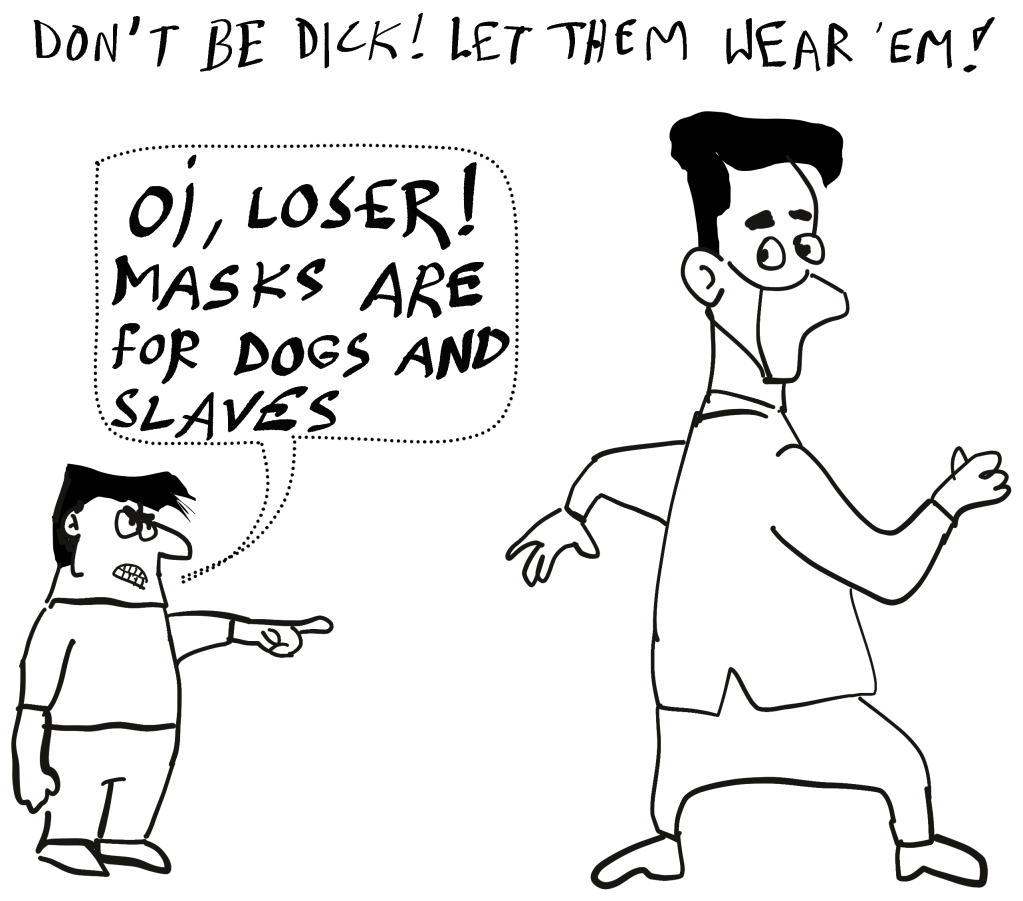 DON'T BE DICK! LET THEM WEAR 'EM!
Oi, LOSER!
MASKS ARE
FOR DOGS AND
SLAVES